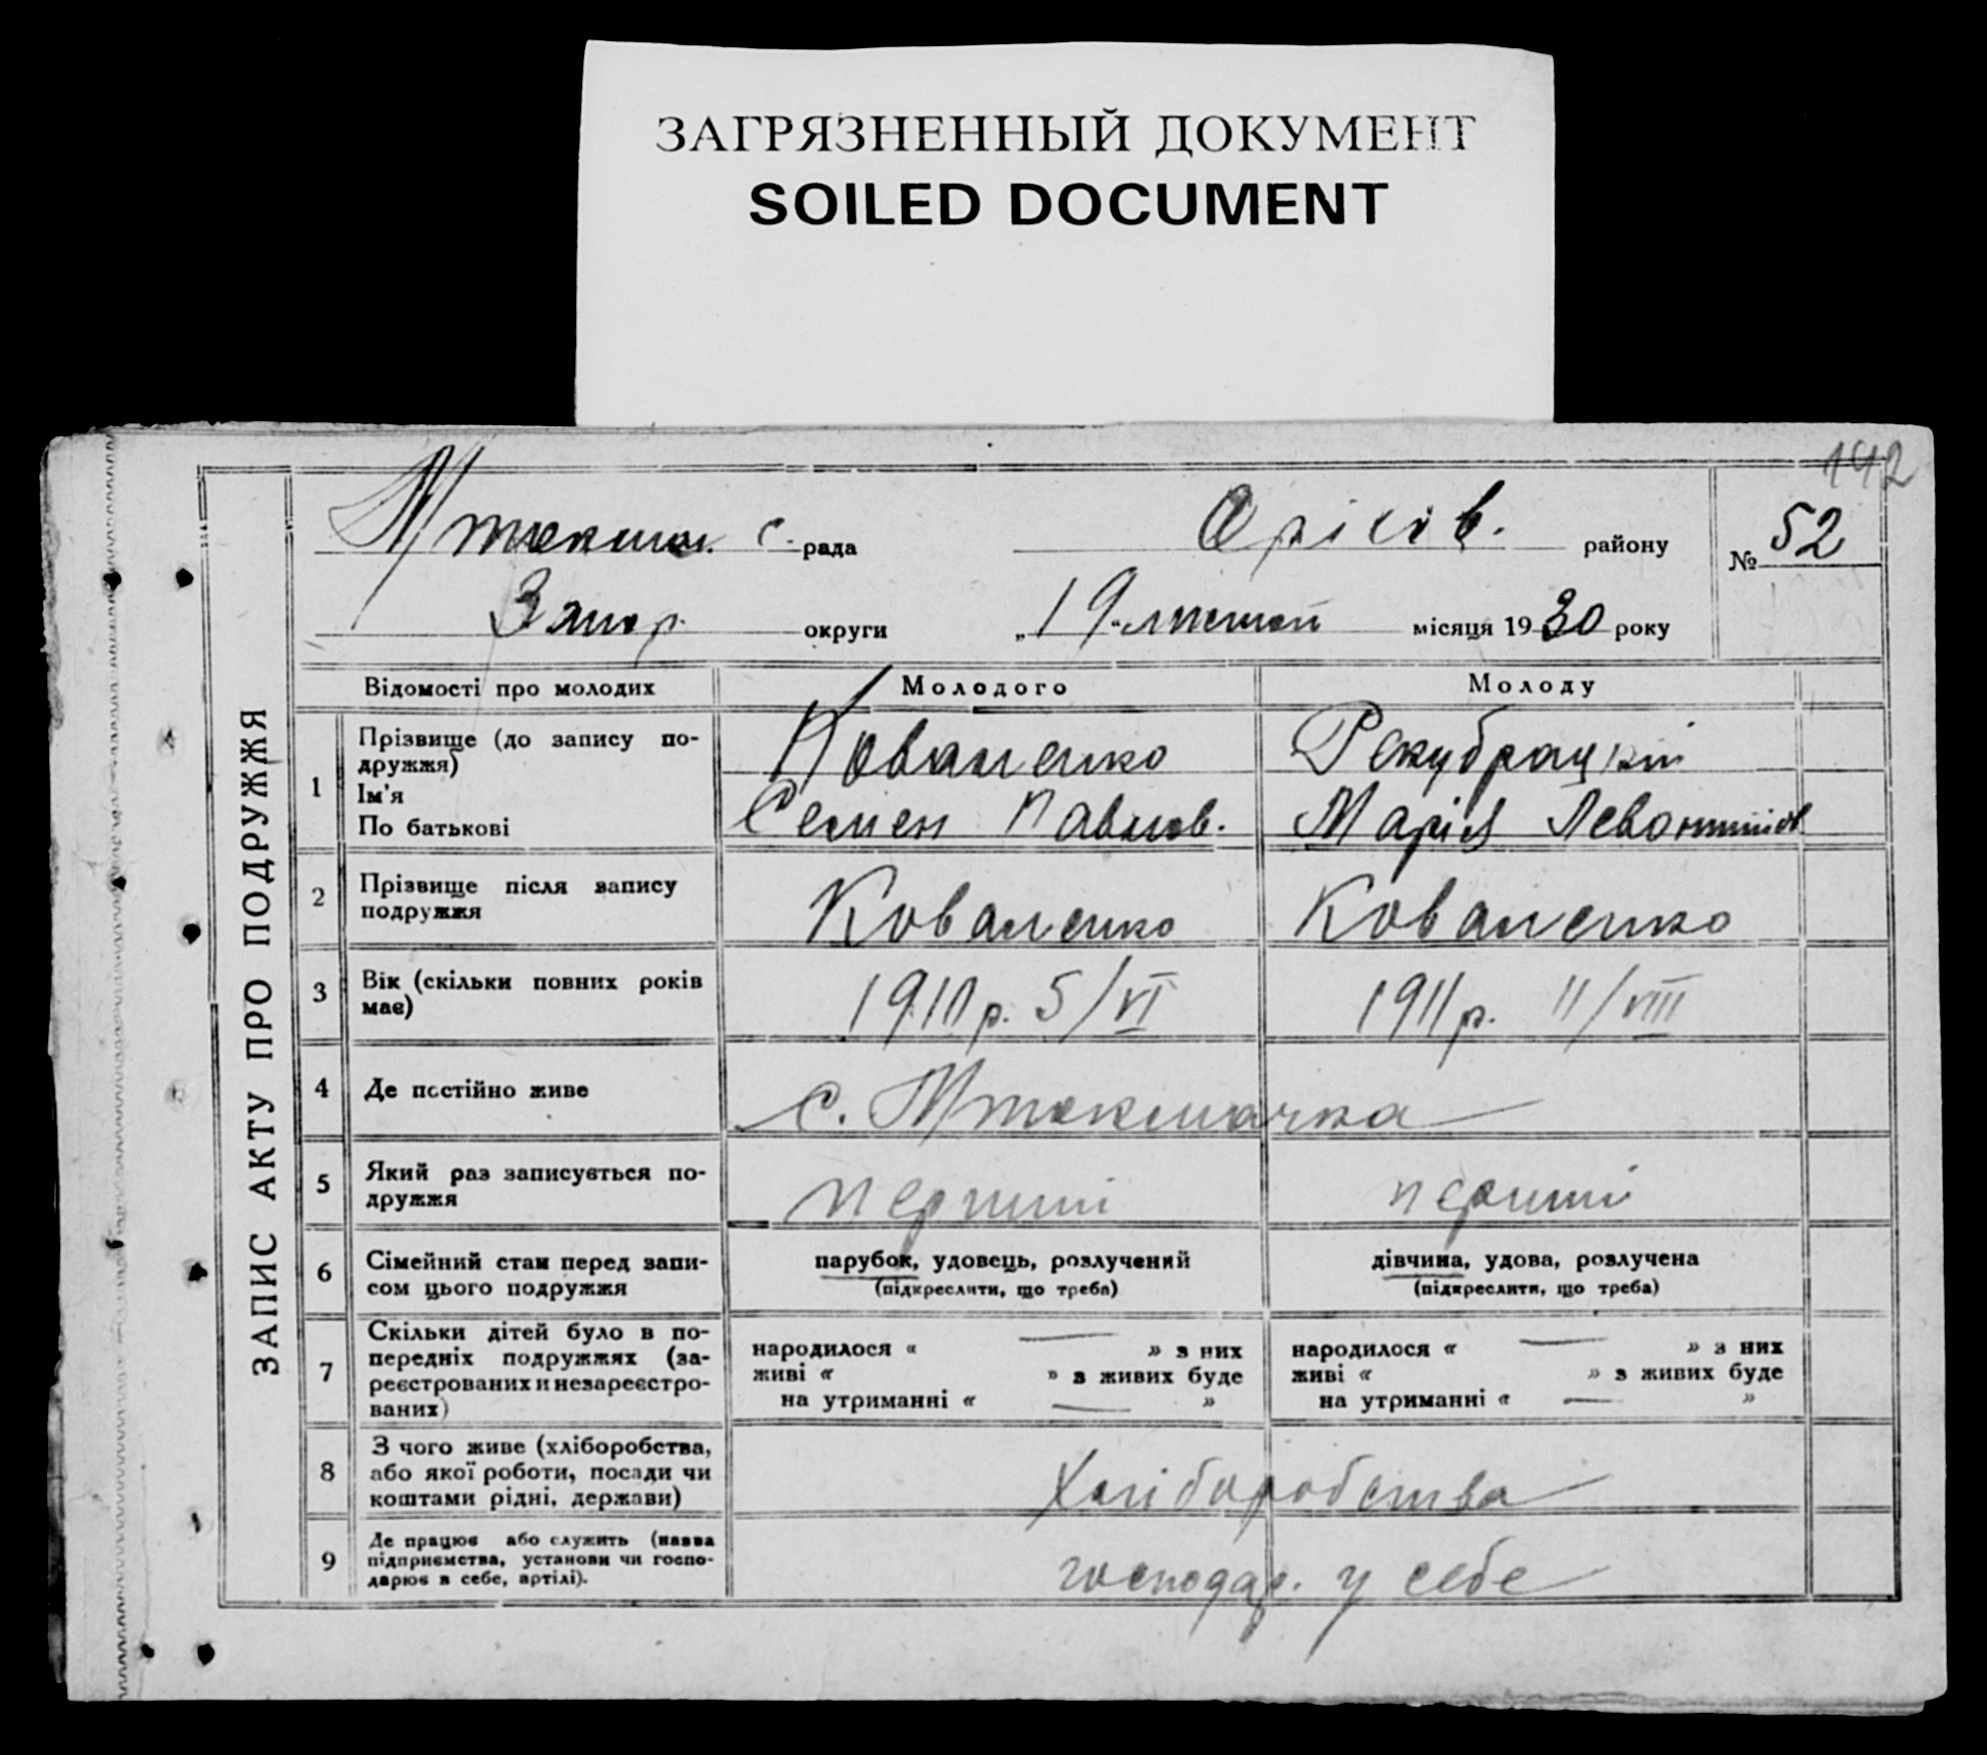 ЗАГРЯЗНЕННЫЙ ДОКУМЕНТ
SOILED DOCUMENT
142
ЗАПИС АКТУ ПРО ПОДРУЖЖЯ
Мтокмач. с. рада Оріхів. району № 52
Запор. округи „19“ лютого місяця 1930 року
Відомості про молодих Молодого Молоду
1 Прізвище (до запису по-
дружжя)
Ім'я
По батькові
Коваленко
Семен Павлов.
Рекубрацкий
Марія
2 Прізвище після запису
подружжя
Коваленко Коваленко
3 Вік (скільки повних років
має)
1910 р. 5/VI 1911 р. 11/VIII
4 Де постійно живе
с. Мтокмачка
5 Який раз записується по-
дружжя
перший перший
6 Сімейний стан перед запи-
сом цього подружжя
парубок, удовець, розлучений
(підкреслити, що треба)
дівчина, удова, розлучена
(підкреслити, що треба)
7 Скільки дітей було в по-
передніх подружжях (за-
реєстрованих и незареєстро-
ваних)
народилося « — » з них
живі « » з живих буде
на утриманні « — »
народилося « — » з них
живі « » з живих буде
на утриманні « — »
8 З чого живе (хліборобства,
або якої роботи, посади чи
коштами рідні, держави)
Хліборобства
9 Де працює або служить (назва
підприємства, установи чи госпо-
дарює в себе, артілі).
господар. у себе